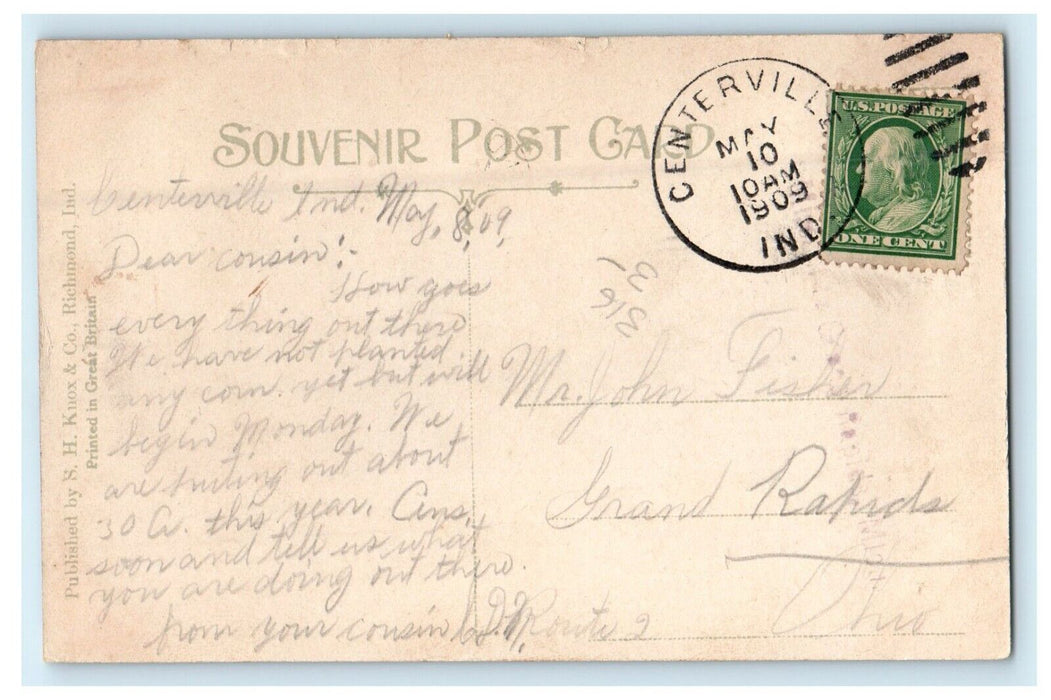 SOUVENIR POST CARD
CENTERVILLE
MAY
10
10AM
1909
IND.
U.S. POSTAGE
ONE CENT
Centerville Ind. May, 8, 09,
Dear cousin:-
How goes
every thing out there
We have not planted
any corn. yet but will
begin Monday. We
are puting out about
30 A. this year. Ans,
soon and tell us what
you are doing out there.
from your cousin
316
3
Mr. John Fisher
Grand Rapids
Ohio
Route 2
Published by S. H. Knox & Co., Richmond, Ind.
Printed in Great Britain